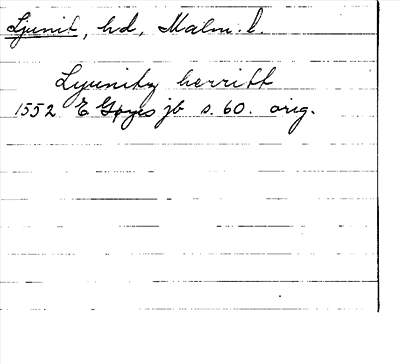 Ljunit, hd, Malm. l.
Lyunitz herritt
1552 E Gøyes jb s. 60. orig.